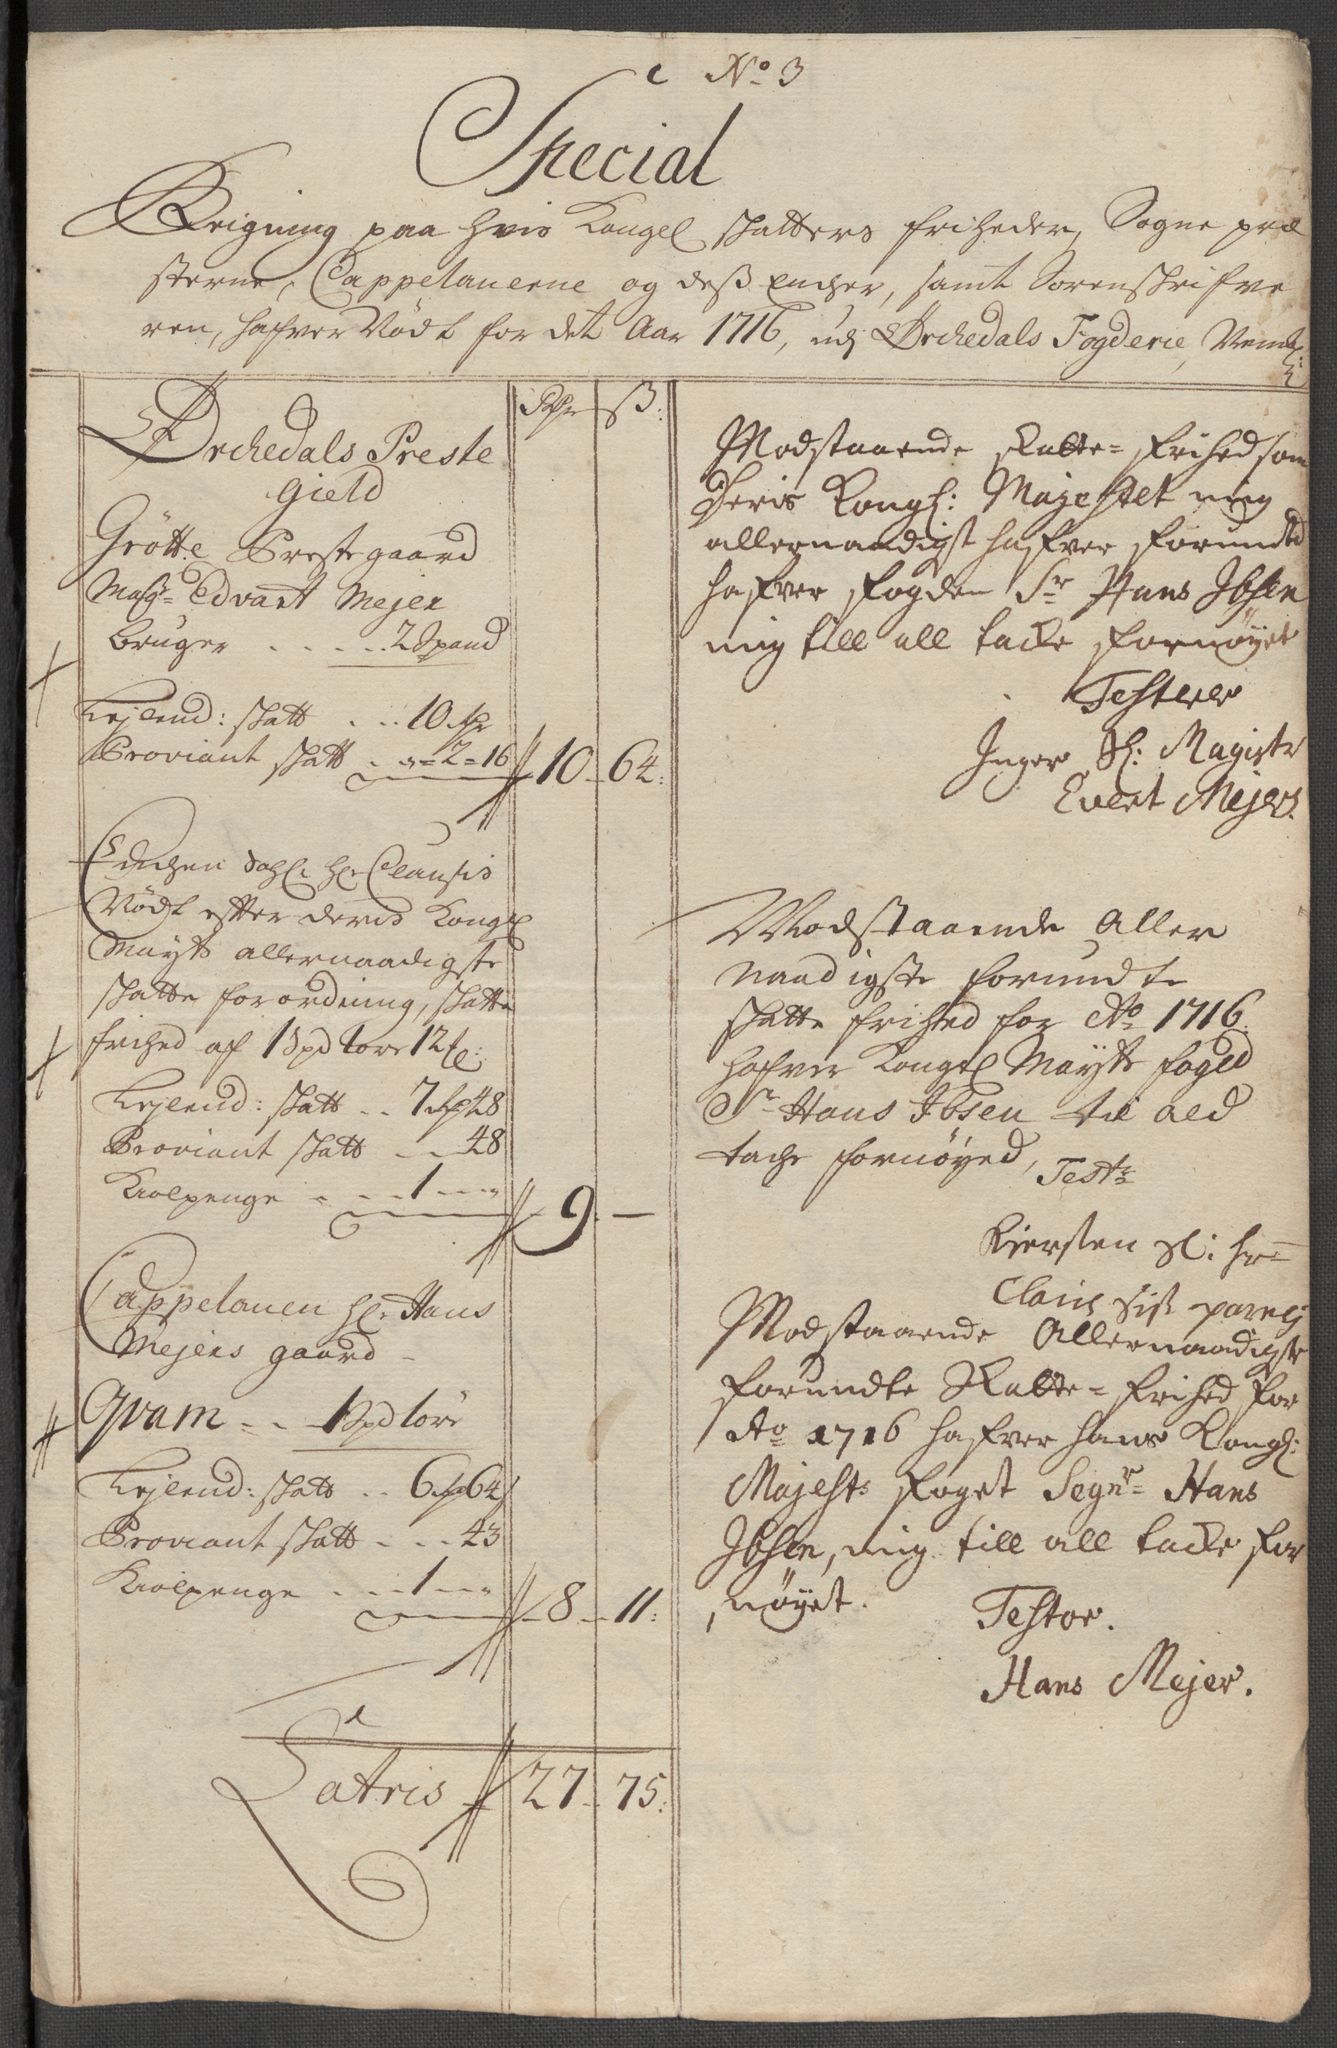 No 3
Special
Reigning paa hvis Kongel skatters friheder, Sogne præ
sterne, Cappelanerne og dess Encher, samt Sorenskrifve
ren, hafver Nödt for det Aar 1716, udj Örchedals Fogderie, Neml:
Rdr ß:
Örchedals Preste
Gield
Grötte Prestegaard
Magr Edvart Mejer
bruger . . . . . 2 Spand
Lejlend: skatt . . . 10 Rdr
Proviant skatt . . - 2 - 16 10 64:
Enchen Sahl: Hr Clausis
Nödt efter deris Kongl
Mayts allernaadigste
skatte forordning, skatte
frihed af 1 Spd 1 ore 12
Lejlend: skatt . . 7 Rdr 48
Proviant skatt . . 48
Kiolpenge . . . 1 --- 9. —
Cappelanen Hr Hans
Mejers gaard
Qvam - . . 1 Spd 1 öre
Lejlend: skatt . . 6 Rdr 64
Proviant skatt . . . 43
Kiolpenge . . . 1 --- 8 11:
Latris 27 75:
Modstaaende Skatte-frihed som
Deris Kongl: Majestet mig
allernaadigst hafver forundted
hafver fogden Sr Hans Ibsen
mig till all tacke fornøyet
Testerer
Inger Sl: Magistr
Evert Mejers.
Modstaaende Aller
naadigste forundte
skatte frihed for Ao 1716
hafver Kongel Mayts foged
Sr Hans Ibsen til ald
tache fornøyed, Test:
Kiersten Sl: hr
Claus
Modstaaende Allernaadigste
forundte Skatte-frihed for
Ao 1716 hafver hans Kongl:
Majests foget Segnr Hans
Ibsen, mig till all tacke for
nøyet. Testor.
Hans Mejer.